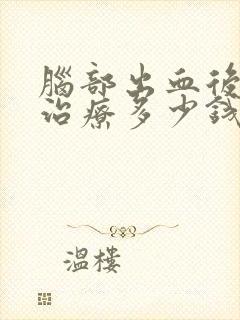 腦部出血後
治療多少錢
溫樓